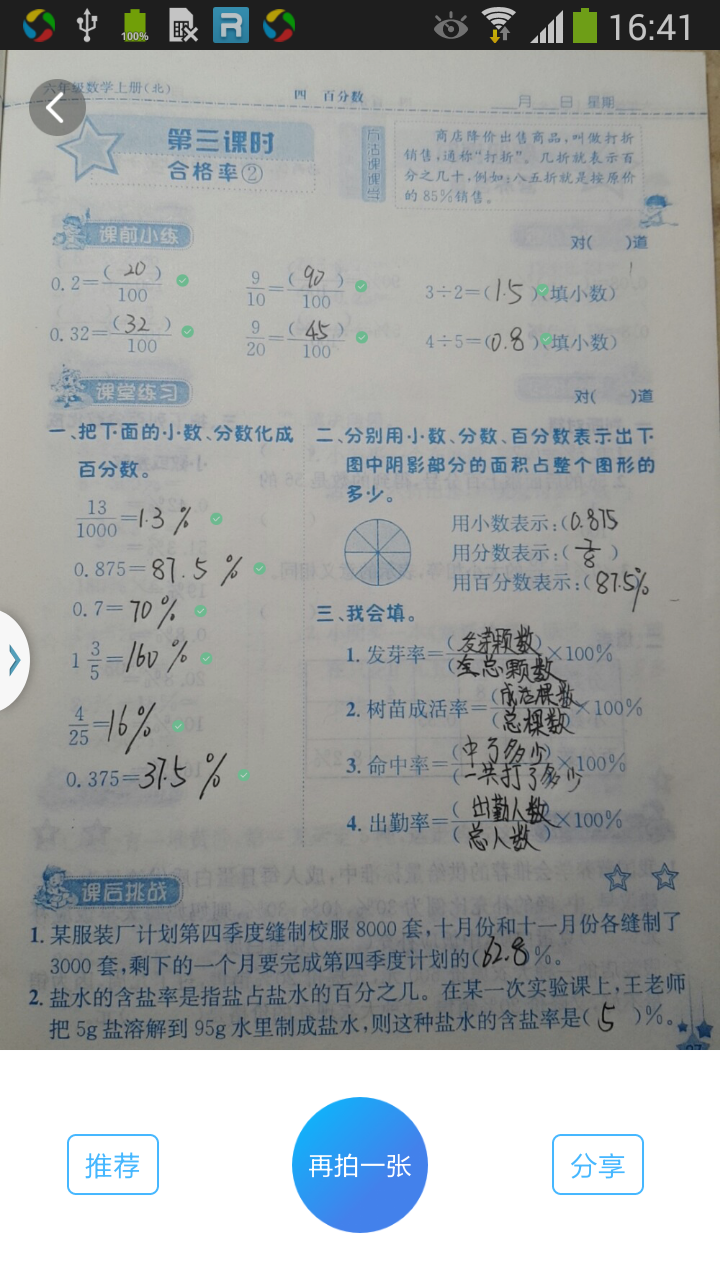 100%
16:41
六年级数学上册(北)
四 百分数
月 日 星期
第三课时
合格率②
商店降价出售商品,叫做打折
销售,通称"打折"。几折就表示百
分之几十,例如:八五折就是按原价
的85%销售。
课前小练
对( )道
0.2=(20)/100
9/10=(90)/100
3÷2=(1.5)(填小数)
0.32=(32)/100
9/20=(45)/100
4÷5=(0.8)(填小数)
课堂练习
对( )道
一、把下面的小数、分数化成
百分数。
13/1000=1.3%
0.875=87.5%
0.7=70%
1 3/5=160%
4/25=16%
0.375=37.5%
二、分别用小数、分数、百分数表示出下
图中阴影部分的面积占整个图形的
多少。
用小数表示:(0.875
用分数表示:(7/8)
用百分数表示:(87.5%
三、我会填。
1. 发芽率=(发芽颗数)/(总颗数)×100%
2. 树苗成活率=(成活棵数)/(总棵数)×100%
3. 命中率=(中了多少)/(一共打了多少)×100%
4. 出勤率=(出勤人数)/(总人数)×100%
课后挑战
1. 某服装厂计划第四季度缝制校服8000套,十月份和十一月份各缝制了
3000套,剩下的一个月要完成第四季度计划的(62.8)%。
2. 盐水的含盐率是指盐占盐水的百分之几。在某一次实验课上,王老师
把5g盐溶解到95g水里制成盐水,则这种盐水的含盐率是(5)%。
推荐
再拍一张
分享